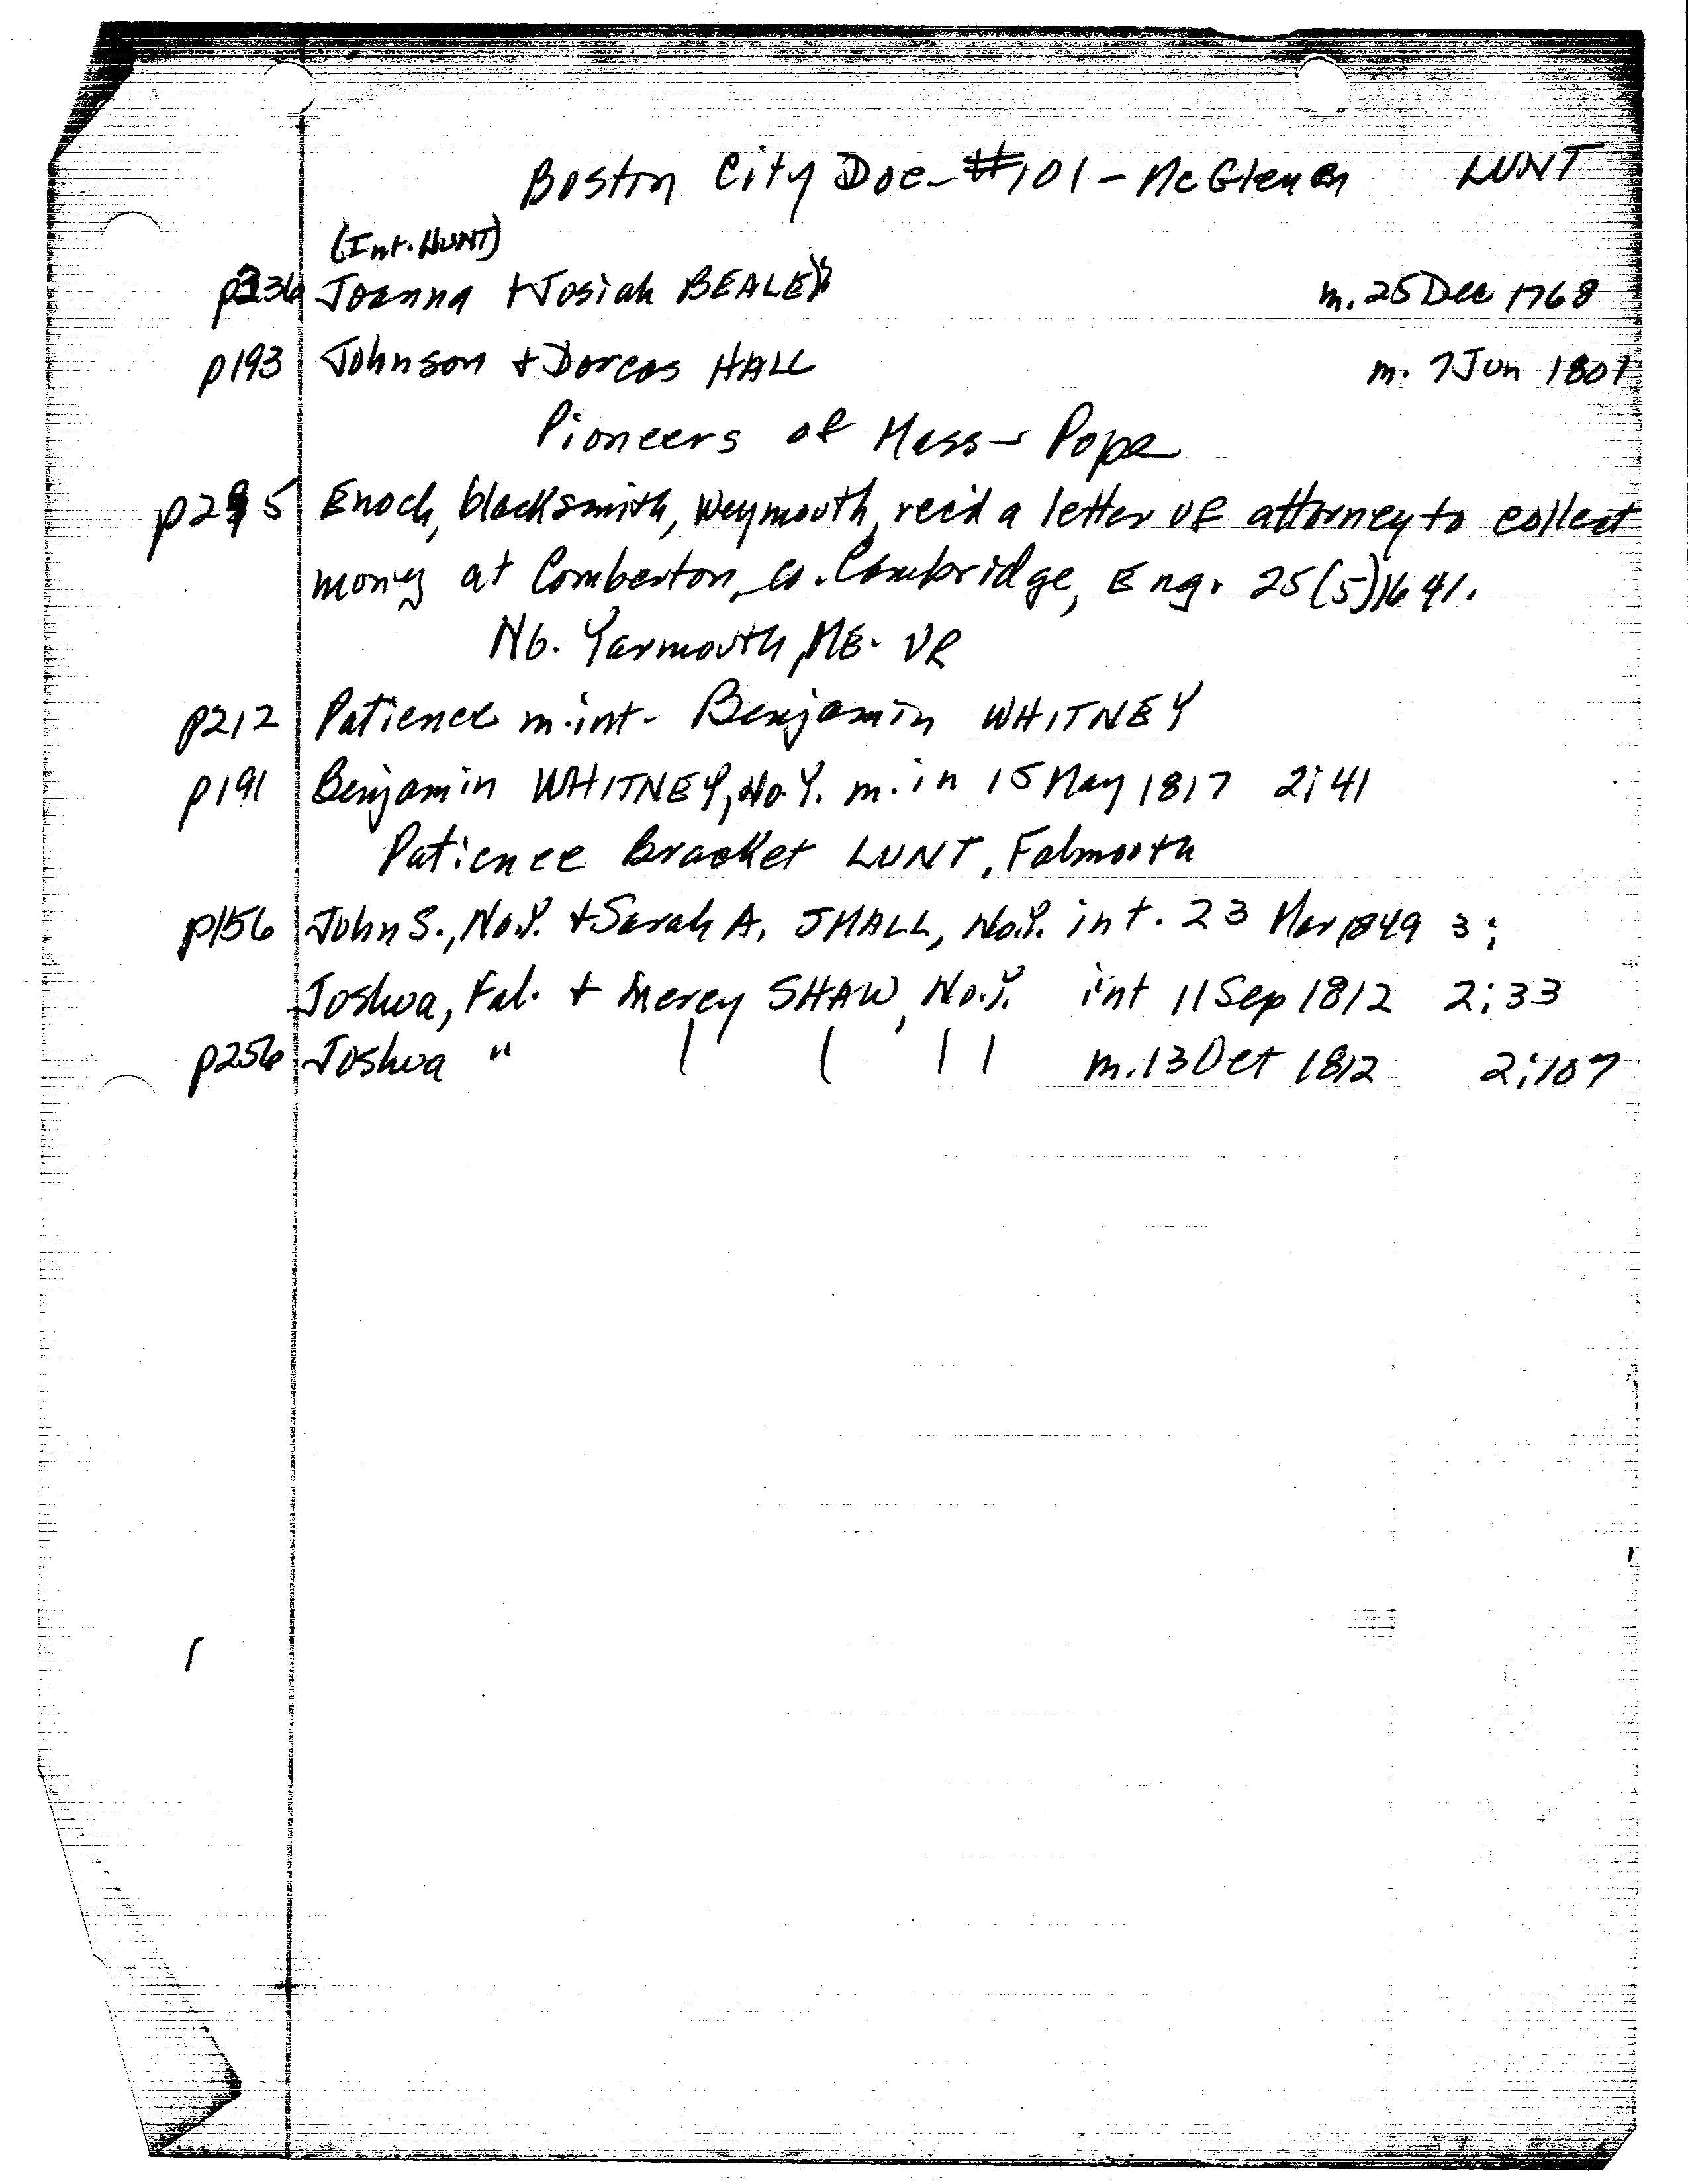 Boston City Doc-#101-McGlenen LUNT
(Int. HUNT)
Joanna + Josiah BEALE m. 25 Dec 1768
p193 Johnson + Dorcas HALL m. 7 Jun 1801
Pioneers of Mass - Pope
Enoch, blacksmith, Weymouth, rec'd a letter of attorney to collect
money at Comberton, co. Cambridge, Eng. 25(5)1641.
No. Yarmouth, ME. VR
p212 Patience m.int. Benjamin WHITNEY
p191 Benjamin WHITNEY, No Y. m. in 15 May 1817 2;41
Patience Bracket LUNT, Falmouth
p156 John S., No.Y. + Sarah A. SMALL, No.Y. int. 23 Mar 1849 3;
Joshua, Fal. + Mercy SHAW, No.Y. int 11 Sep 1812 2;33
p256 Joshua " | | | | m. 13 Oct 1812 2;107